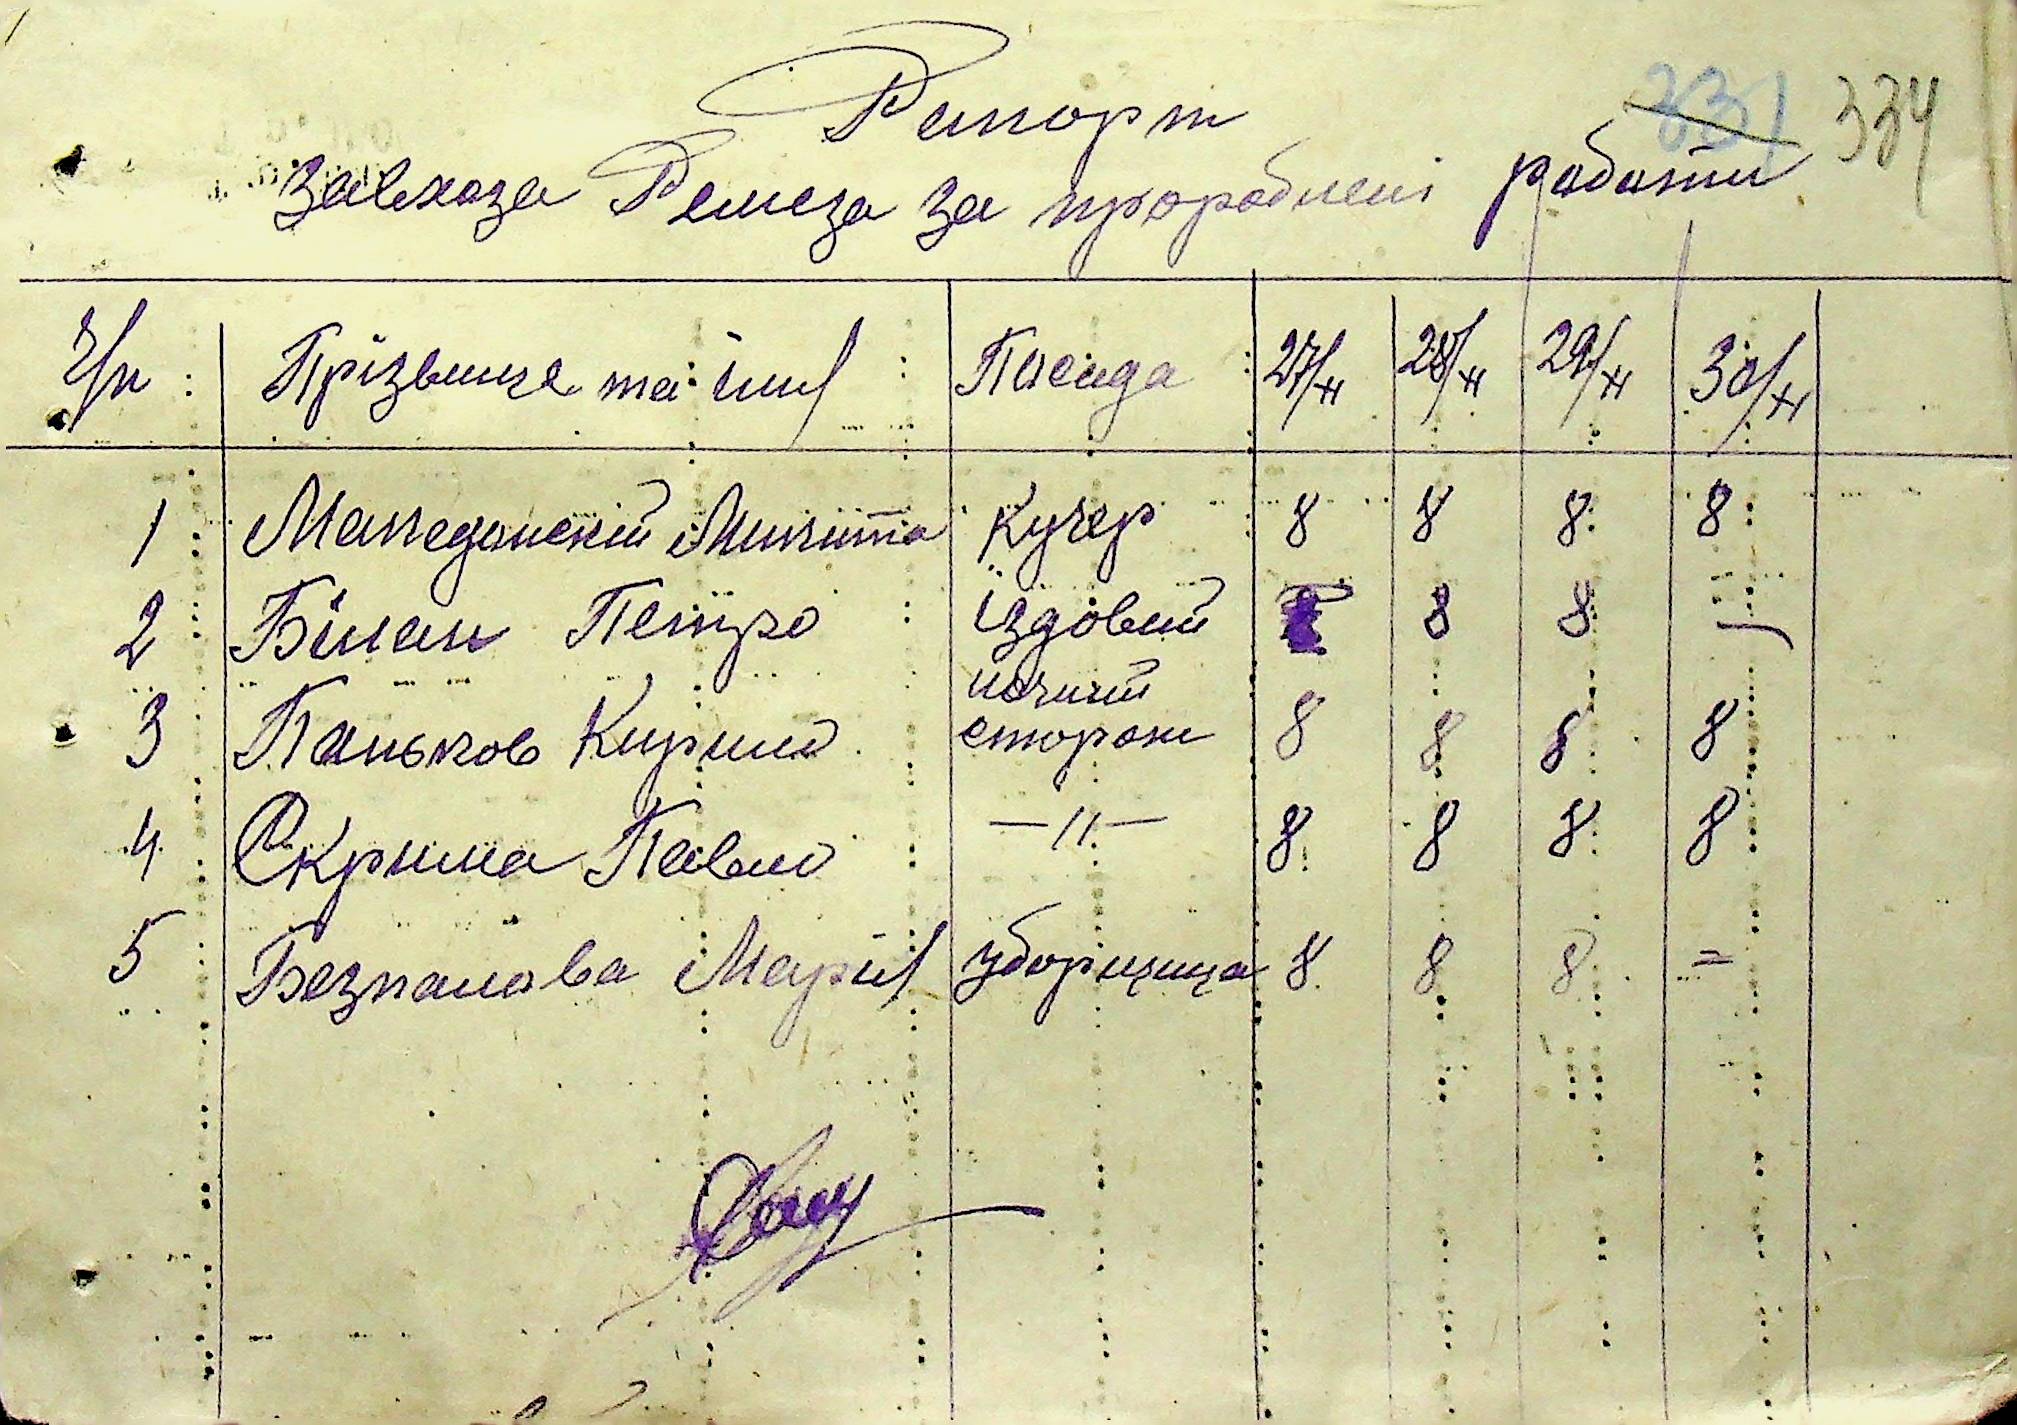 Рапорт
334
331
Завхоза Ремеза за пророблені работи
Ч/п Прізвище та імя Посада 27/XI 28/XI 29/XI 30/XI
1 Македонскій Микита Кучер 8 8 8 8
2 Білан Петро їздовий 8 8 —
3 Паньков Кирило ночний сторож 8 8 8 8
4 Скрипка Павло —〃— 8 8 8 8
5 Безпалова Марія уборщица 8 8 8 =